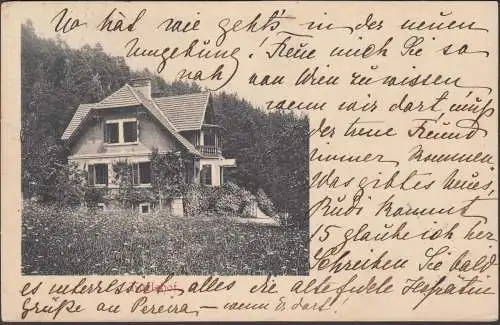 Wo hat wie geht's in der neuen
Umgebung! Freue mich Sie so
nah von Wien zu wissen
wenn wir dort muß
der treue Freund
immer kommen
Was gibt es Neues,
Rudi kommt
15 glaube ich her
Schreiben Sie bald
es interressirt alles die alte
Grüße an – wenn Er dort!